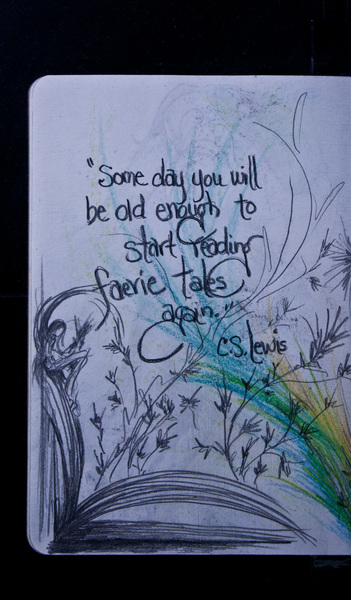 "Some day you will
be old enough to
start reading
faerie tales
again."
C.S. Lewis